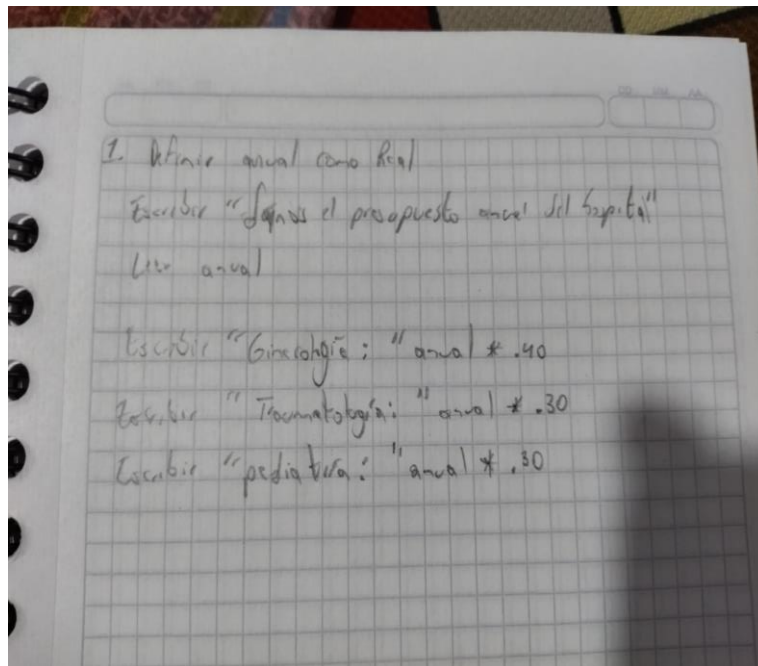 1. Definir anual como Real
Escribir "danos el presupuesto anual del hospital"
Leer anual
Escribir "Ginecología: " anual * .40
Escribir "Traumatología: " anual * .30
Escribir "pediatría: " anual * .30